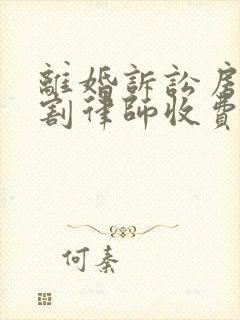 離婚訴訟房
割律師收費
何秦